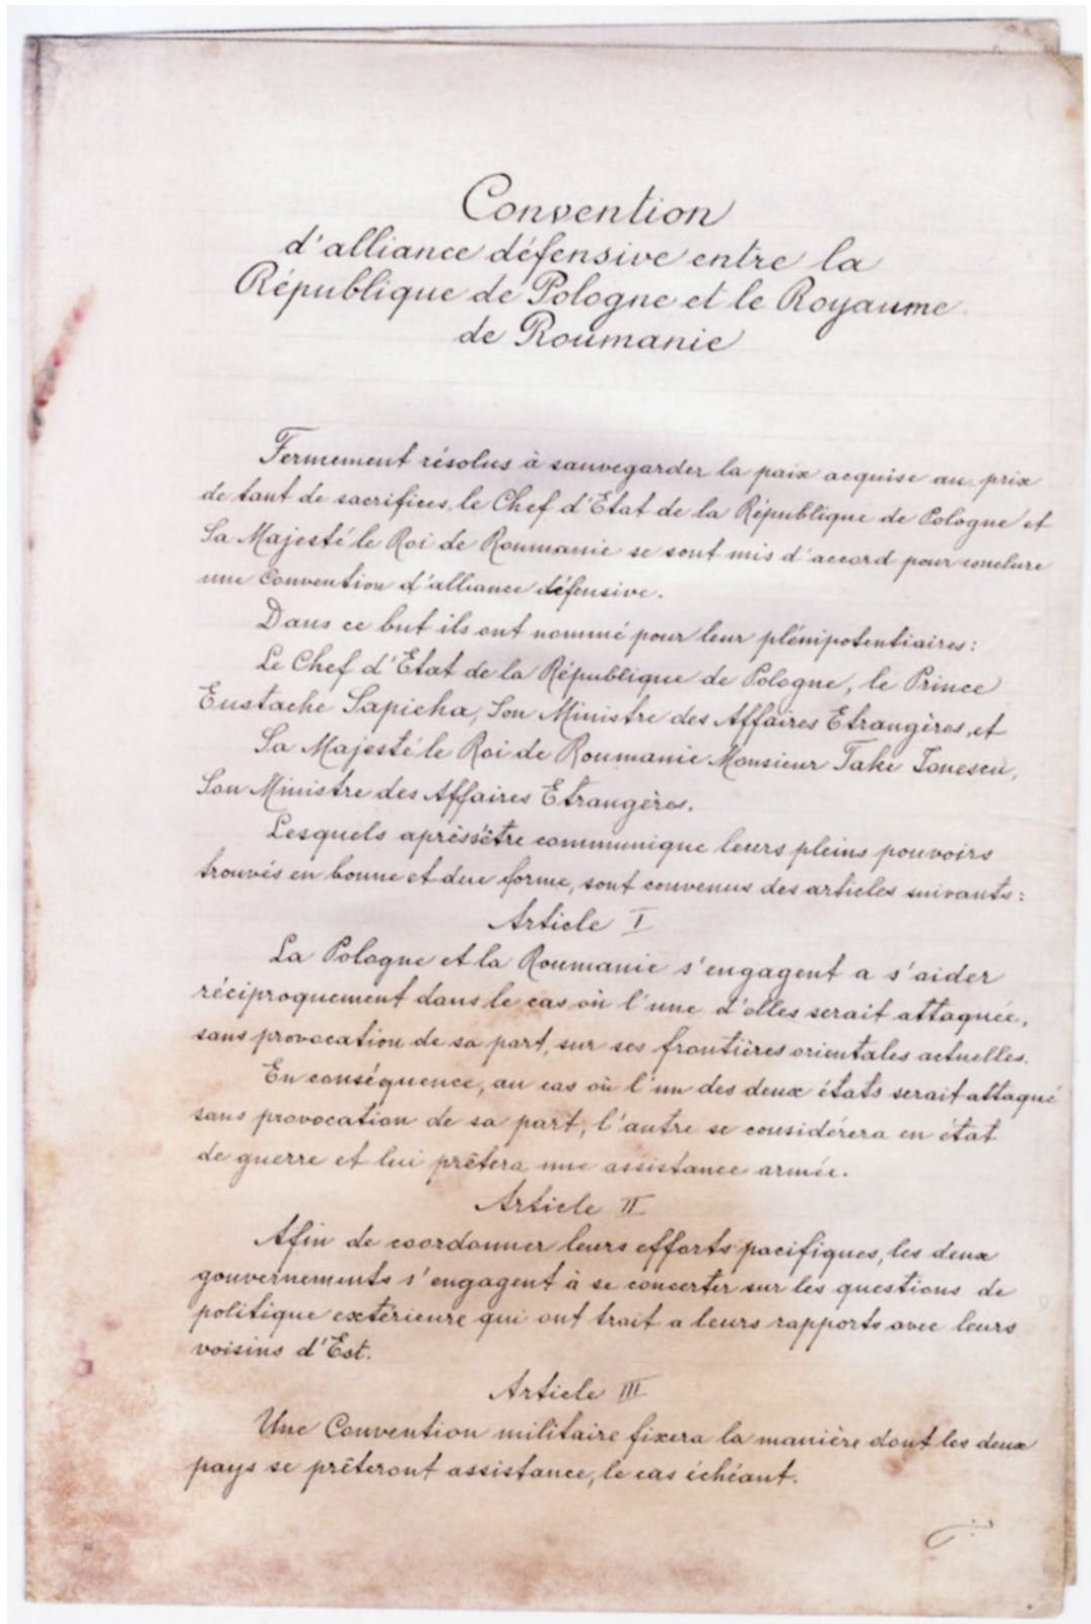 Convention
d'alliance défensive entre la
République de Pologne et le Royaume
de Roumanie
Fermement résolus à sauvegarder la paix acquise au prix
de tant de sacrifices, le Chef d'Etat de la République de Pologne et
Sa Majesté le Roi de Roumanie se sont mis d'accord pour conclure
une Convention d'alliance défensive.
Dans ce but ils ont nommé pour leur plénipotentiaires:
Le Chef d'Etat de la République de Pologne, le Prince
Eustache Sapieha, Son Ministre des Affaires Etrangères, et
Sa Majesté le Roi de Roumanie Monsieur Take Ionescu,
Son Ministre des Affaires Etrangères.
Lesquels après s'être communique leurs pleins pouvoirs
trouvés en bonne et due forme, sont convenus des articles suivants:
Article I
La Pologne et la Roumanie s'engagent a s'aider
réciproquement dans le cas où l'une d'elles serait attaquée,
sans provocation de sa part, sur ses frontières orientales actuelles.
En conséquence, au cas où l'un des deux états serait attaqué
sans provocation de sa part, l'autre se considérera en état
de guerre et lui prêtera une assistance armée.
Article II
Afin de coordonner leurs efforts pacifiques, les deux
gouvernements s'engagent à se concerter sur les questions de
politique extérieure qui ont trait a leurs rapports avec leurs
voisins d'Est.
Article III
Une Convention militaire fixera la manière dont les deux
pays se prêteront assistance, le cas échéant.